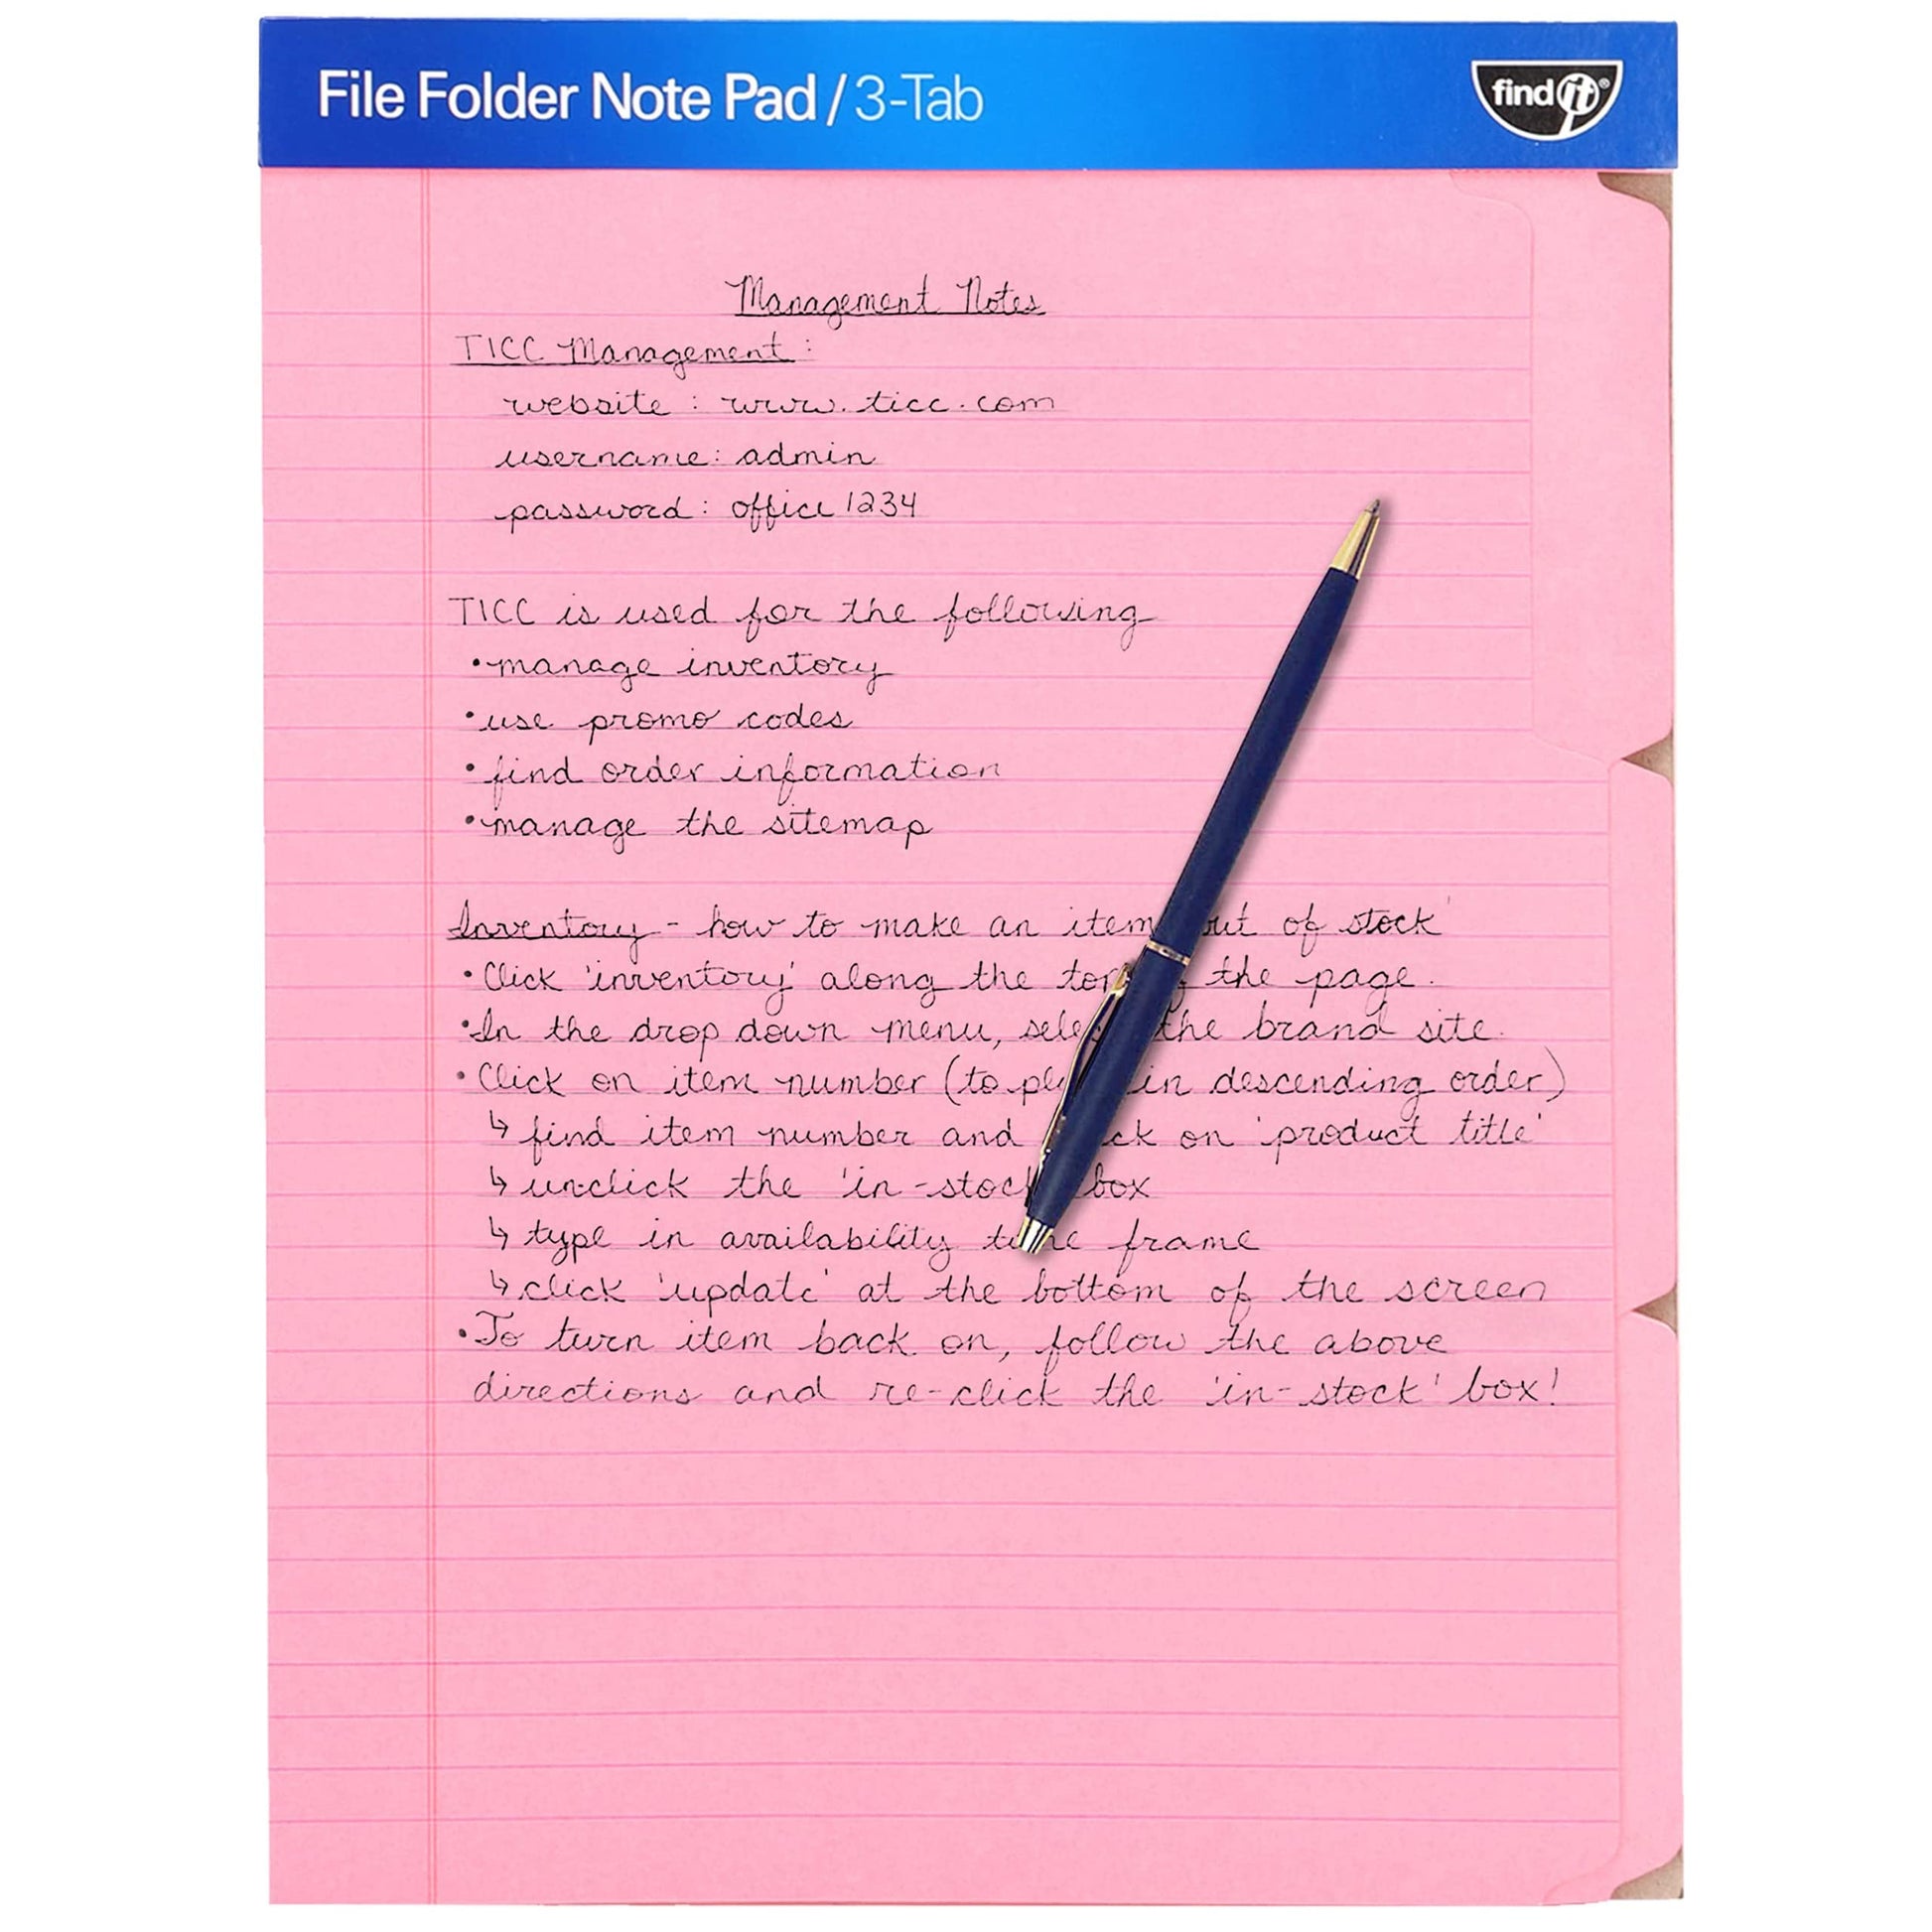 File Folder Note Pad / 3-Tab
find it®
Management Notes
TICC Management:
website: www.ticc.com
username: admin
password: office1234
TICC is used for the following
• manage inventory
• use promo codes
• find order information
• manage the sitemap
Inventory - how to make an item out of stock'
• Click 'inventory' along the top the page.
• In the drop down menu, select the brand site.
• Click on item number (to in descending order)
↳ find item number and on 'product title'
↳ unclick the 'in-stock box
↳ type in availability time frame
↳ click 'update' at the bottom of the screen
• To turn item back on, follow the above
directions and re-click the 'in-stock' box!